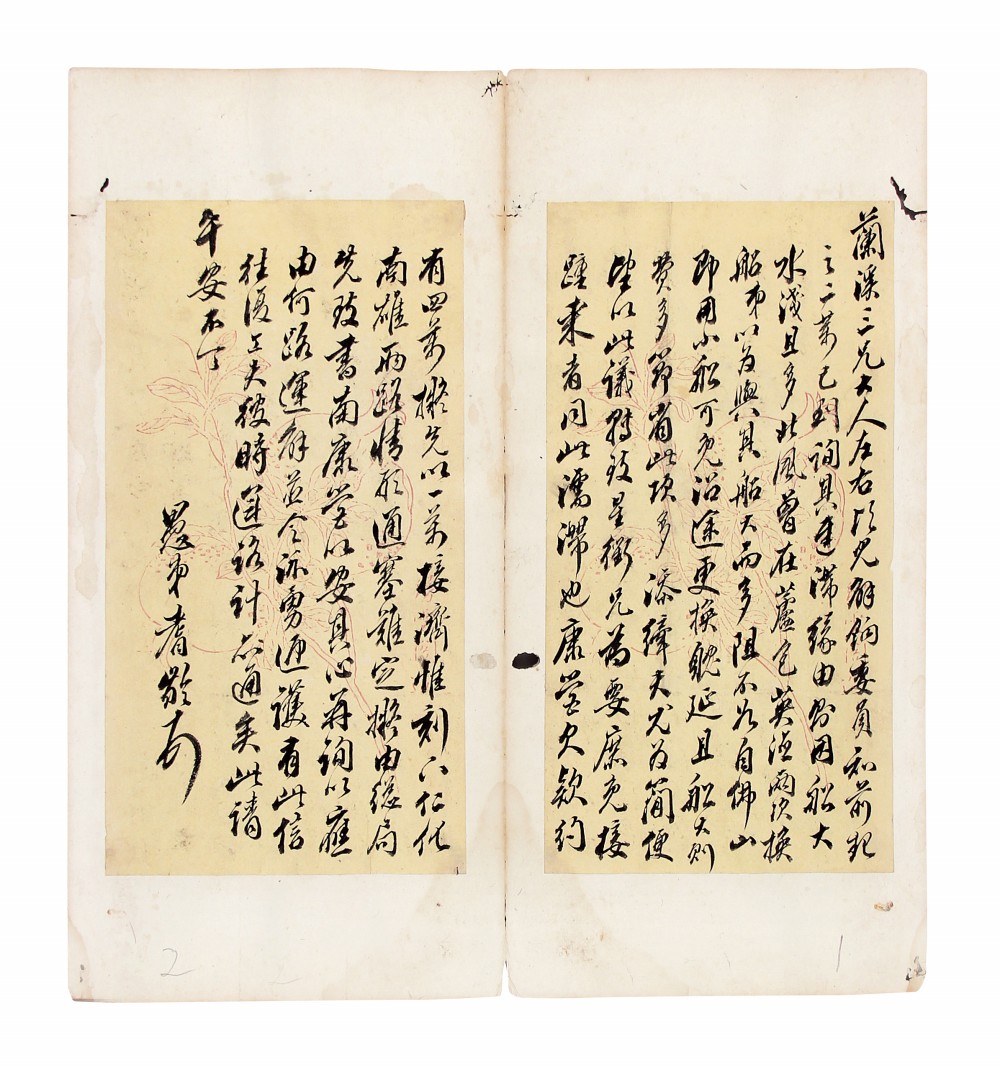 蘭溪三兄大人左右頃見解餉委員知前起
之二萬已到詢其遲滯緣由則因船大
水淺且多北風曾在蘆包英德兩次換
船弟以為與其船大而多阻不如自佛山
即用小船可免沿途更換耽延且船大則
費多節省此項多添縴夫尤為簡便
望以此議轉致星衢兄為要庶免接
踵來者同此濡滯也康營欠款約
有四萬擬先以一萬接濟惟刻下仁化
南雄兩路情形通塞難定擬由總局
先致書南康營以安其心并詢以應
由何路運解並令派勇迎護有此信
往復工夫彼時運路計亦通矣此請
午安不一
愚弟耆齡頓
2
1